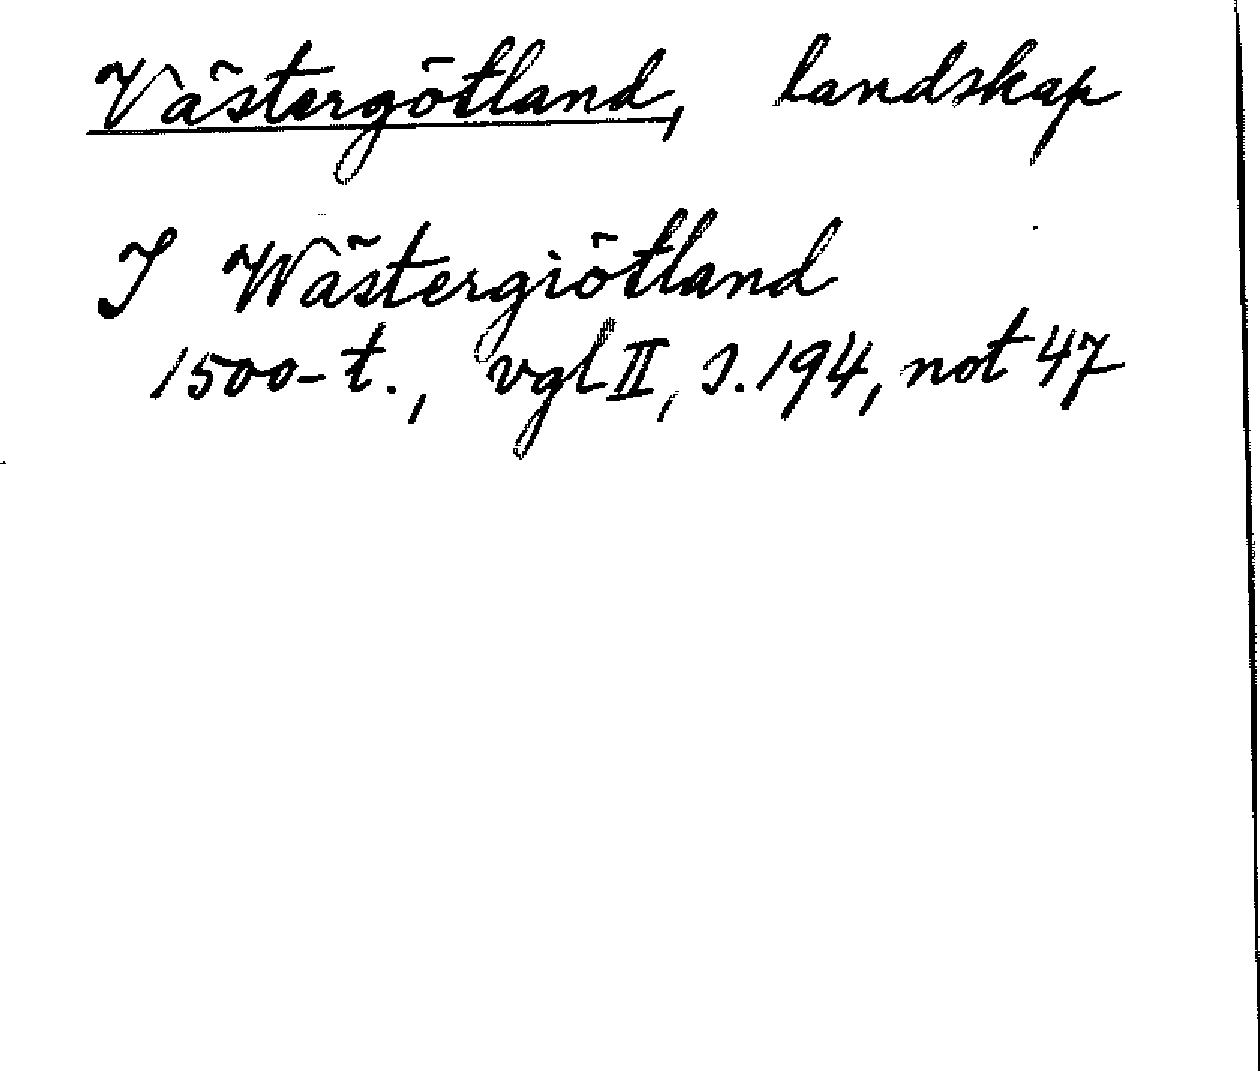 Västergötland, landskap
I Wästergiötland
1500-t., vgl II, s. 194, not 47